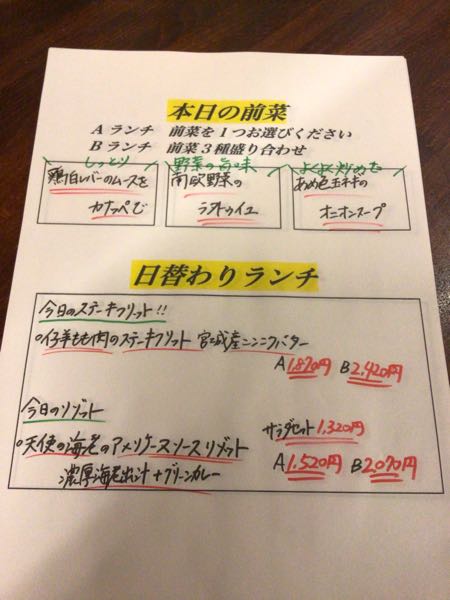 本日の前菜
Aランチ 前菜を1つお選びください
Bランチ 前菜3種盛り合わせ
しっとり
鶏白レバーのムースを
カナッペで
野菜の旨味
南欧野菜の
ラタトゥイユ
よくよく炒めた
あめ色玉ネギの
オニオンスープ
日替わりランチ
今日のステーキフリット!!
○仔羊もも肉のステーキフリット 宮城産ニンニクバター
A 1.870円 B 2.420円
今日のリゾット
サラダセット 1.320円
○天使の海老のアメリケーヌソースリゾット
A 1.520円 B 2.070円
濃厚海老出汁+グリーンカレー